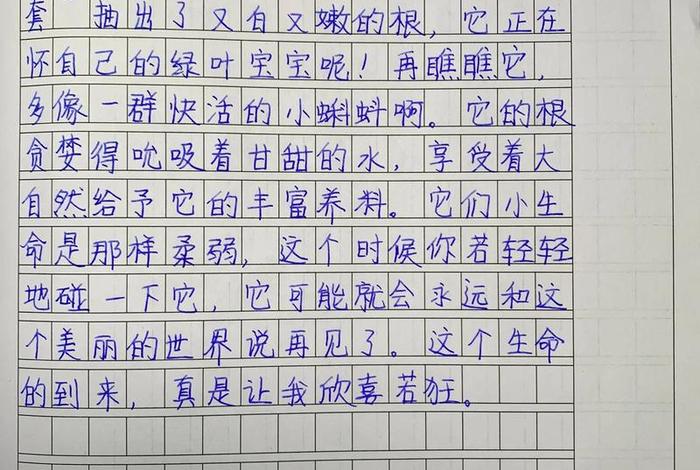 套 抽出了又白又嫩的根，它正在
怀自己的绿叶宝宝呢！再瞧瞧它，
多像一群快活的小蝌蚪啊。它的根
贪婪得吮吸着甘甜的水，享受着大
自然给予它的丰富养料。它们小生
命是那样柔弱，这个时候你若轻轻
地碰一下它，它可能就会永远和这
个美丽的世界说再见了。这个生命
的到来，真是让我欣喜若狂。